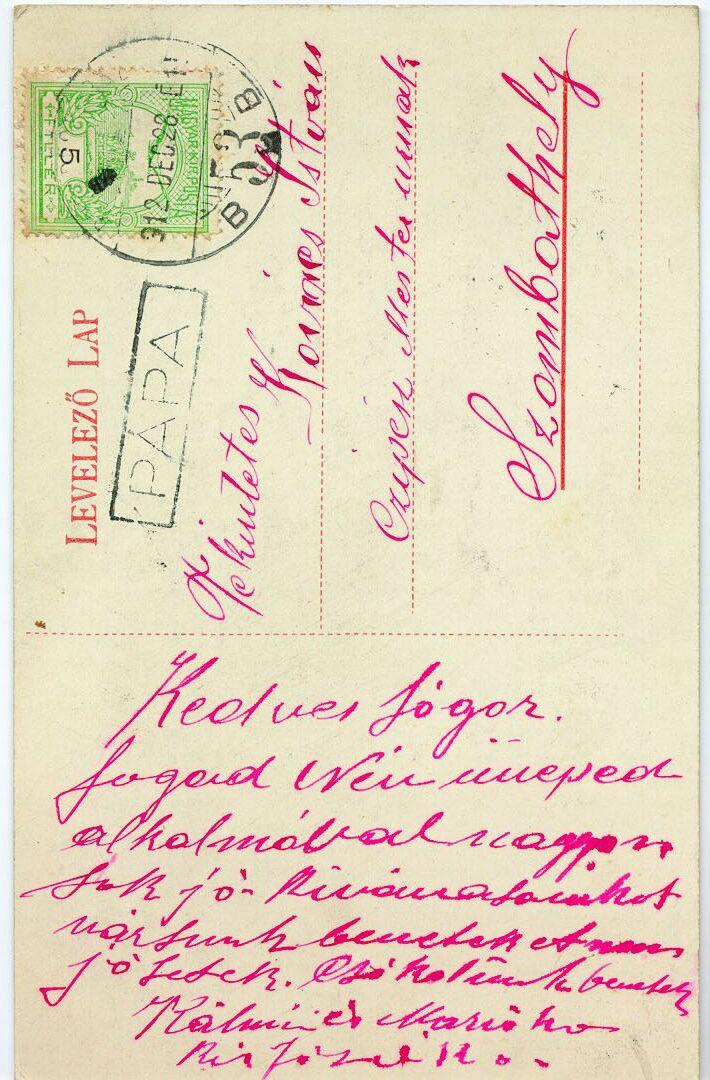 LEVELEZŐ LAP
MAGYAR KIR. POSTA
5
FILLÉR
912 DEC 28
53
B B
PÁPA
Tekintetes
Kovács István
Czipész Mester urnak
Szombathely
Kedves Sógor.
fogad Név ünneped
alkalmával nagyon
sok jó kivánasainkat
vártunk benetek et nem
jötetek. Csókolunk benetek
Kálmán és Mariska
kis Józsika.